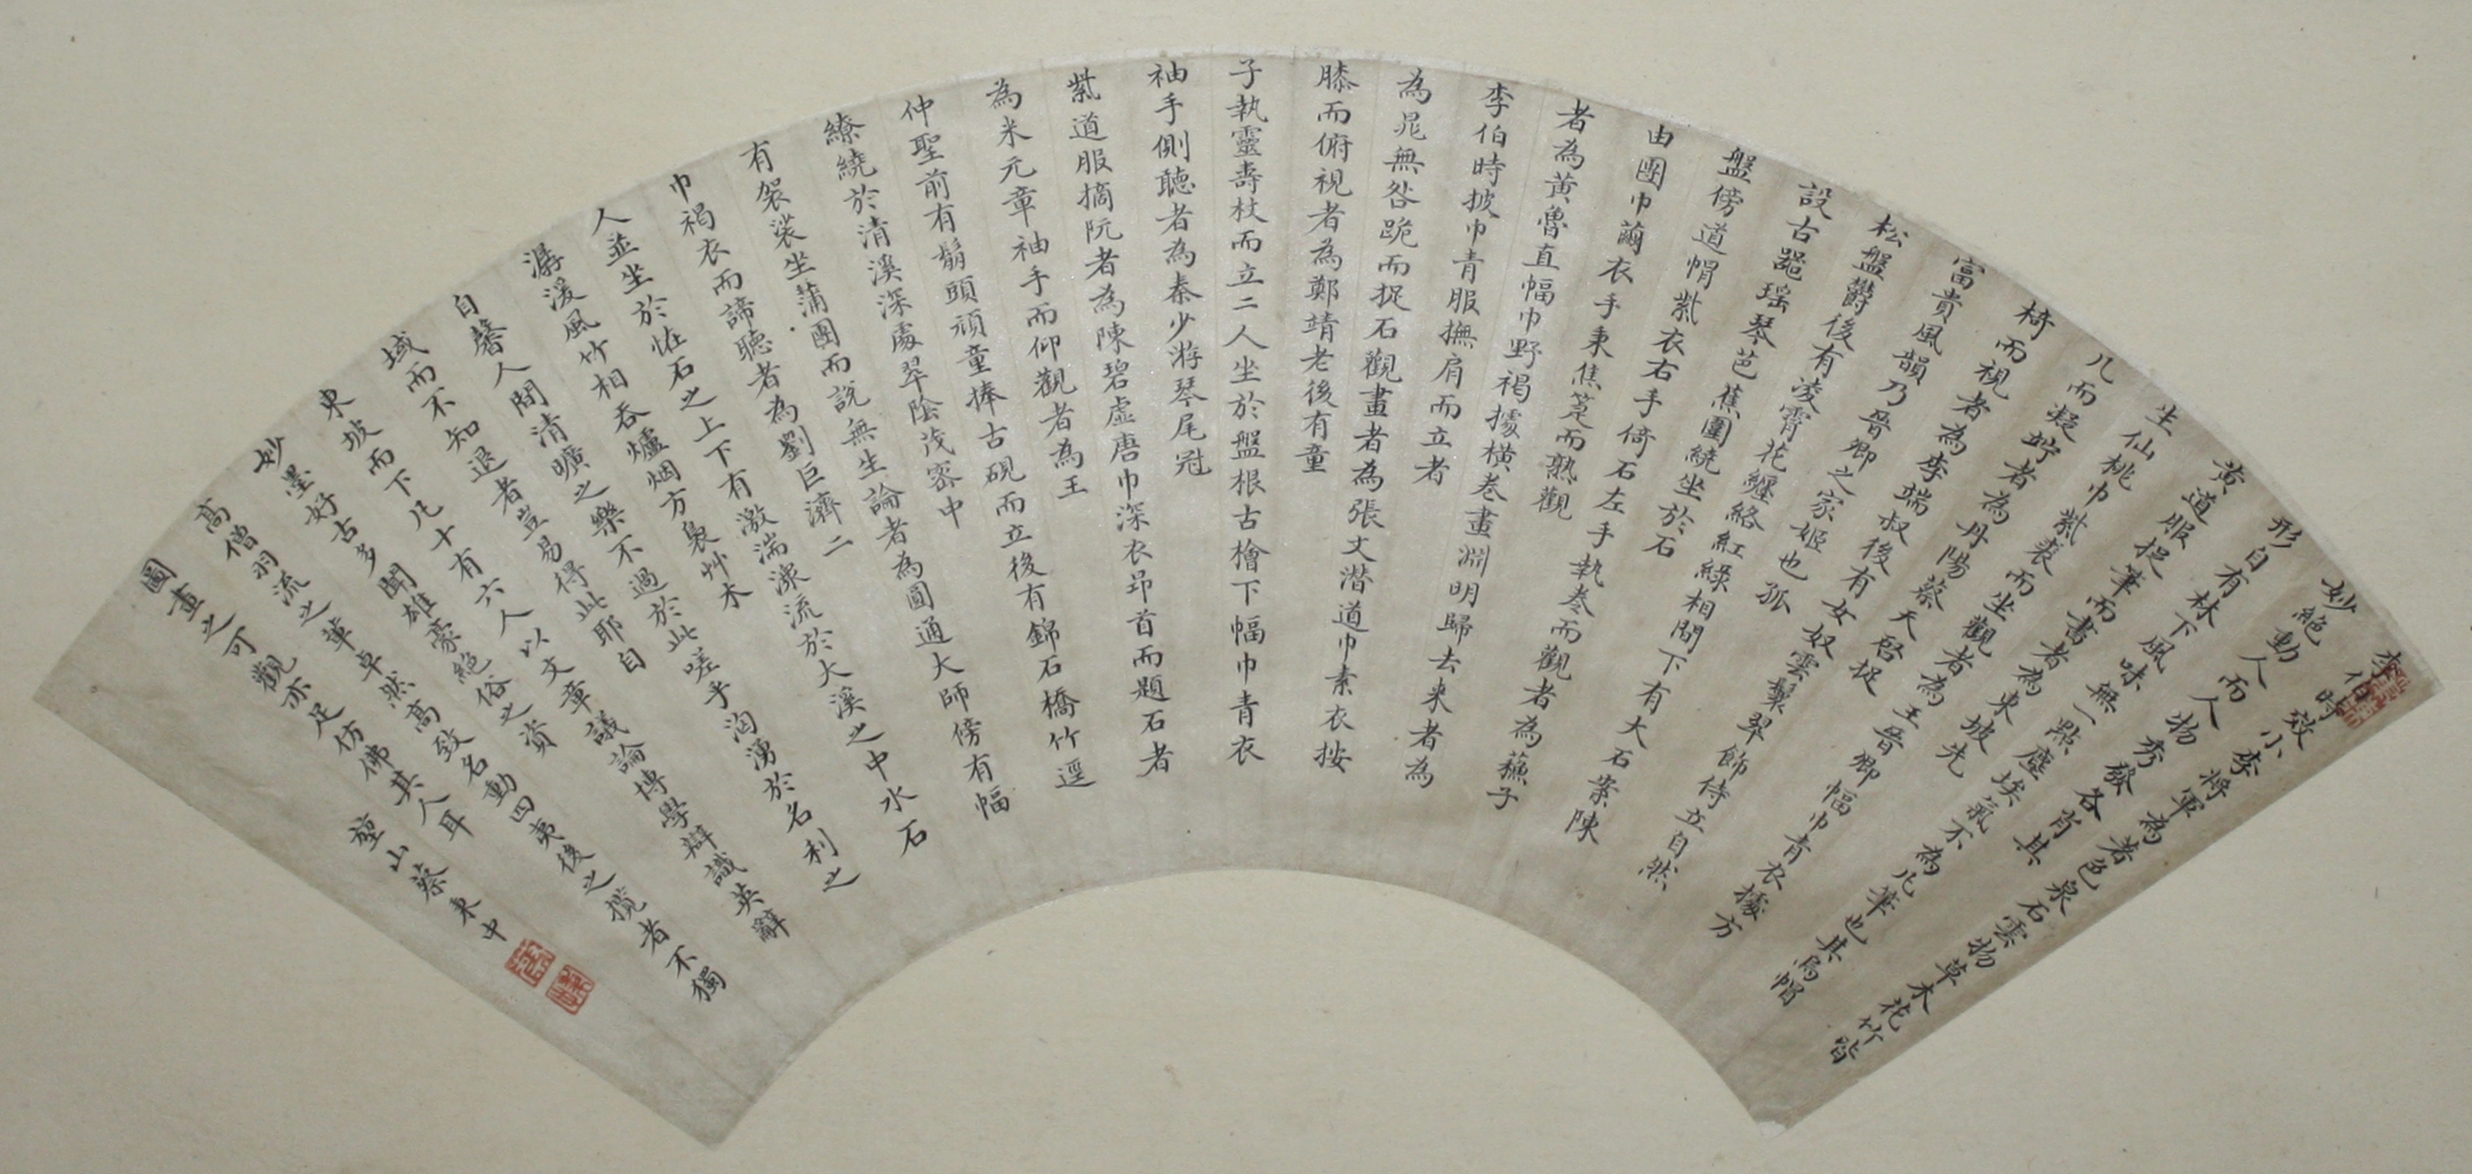 李伯時效小李將軍為著色泉石雲物草木花竹皆
妙絕動人而人物秀發各肖其
形自有林下風味無一點塵埃氣不為凡筆也其烏帽
黃道服捉筆而書者為東坡先
生仙桃巾紫裘而坐觀者為王晉卿幅巾青衣據方
几而凝竚者為丹陽蔡天啓捉
椅而視者為李端叔後有女奴雲鬟翠飾侍立自然
富貴風韻乃晉卿之家姬也孤
松盤欝後有凌霄花纏絡紅綠相間下有大石案陳
設古器瑤琴芭蕉圍繞坐於石
盤傍道帽紫衣右手倚石左手執卷而觀者為蘇子
由團巾繭衣手秉焦箑而熟觀
者為黃魯直幅巾野褐據橫卷畫淵明歸去来者為
李伯時披巾青服撫肩而立者
為晁無咎跪而捉石觀畫者為張文潛道巾素衣按
膝而俯視者為鄭靖老後有童
子執靈壽杖而立二人坐於盤根古檜下幅巾青衣
袖手側聽者為秦少游琴尾冠
紫道服摘阮者為陳碧虛唐巾深衣昂首而題石者
為米元章袖手而仰觀者為王
仲聖前有鬅頭頑童捧古硯而立後有錦石橋竹逕
繚繞於清溪深處翠陰茂密中
有袈裟坐蒲團而說無生論者為圓通大師傍有幅
巾褐衣而諦聽者為劉巨濟二
人並坐於怪石之上下有激湍潨流於大溪之中水石
潺湲風竹相吞爐烟方裊艸木
自馨人間清曠之樂不過於此嗟乎洶湧於名利之
域而不知退者豈易得此耶自
東坡而下凡十有六人以文章議論博學辯識英辭
妙墨好古多聞雄豪絕俗之資
高僧羽流之輩卓然高致名動四夷後之攬者不獨
圖畫之可觀亦足仿佛其人耳
堃山蔡秉中